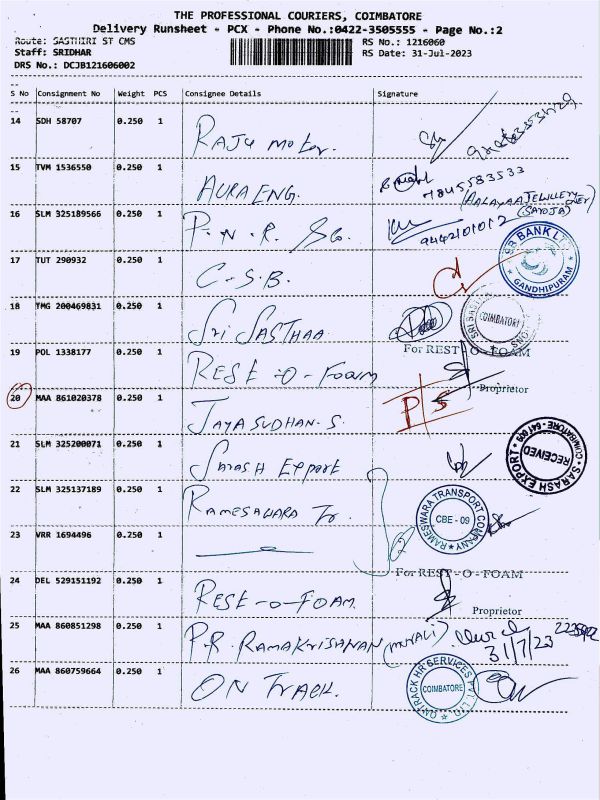 THE PROFESSIONAL COURIERS, COIMBATORE
Delivery Runsheet - PCX - Phone No.:0422-3505555 - Page No.:2
Route: SASTHIRI ST CMS RS No.: 1216060
Staff: SRIDHAR RS Date: 31-Jul-2023
DRS No.: DCJB121606002
S No Consignment No Weight PCS Consignee Details Signature
14 SDH 58707 0.250 1 RAJU Motor.
15 TVM 1536550 0.250 1 AURA ENG. 7845583533
(AALAYAA JEWELLERY
(SAROJA)
16 SLM 325189566 0.250 1 P.N.R. 9442101012
17 TUT 290932 0.250 1 C.S.B.
SR BANK LTD GANDHIPURAM
18 TMG 200469831 0.250 1 SRI SASTHAA
COIMBATORE
For REST - O - FOAM
19 POL 1338177 0.250 1 REST-O-FOAM
Proprietor
20 MAA 861020378 0.250 1 JAYASUDHAN.S. P/S
21 SLM 325200071 0.250 1 Sarash Export
SARASH EXPORT COIMBATORE-641 009 RECEIVED
22 SLM 325137189 0.250 1 RAMESWARA Tr.
RAMESWARA TRANSPORT COMPANY CBE - 09
23 VRR 1694496 0.250 1
For REST - O - FOAM
24 DEL 529151192 0.250 1 REST-O-FOAM
Proprietor
25 MAA 860851298 0.250 1 P.R. RAMAKRISHNAN (MURALI) 31/7/23
26 MAA 860759664 0.250 1 ON TRACK.
ONTRACK HR SERVICES PVT. LTD COIMBATORE